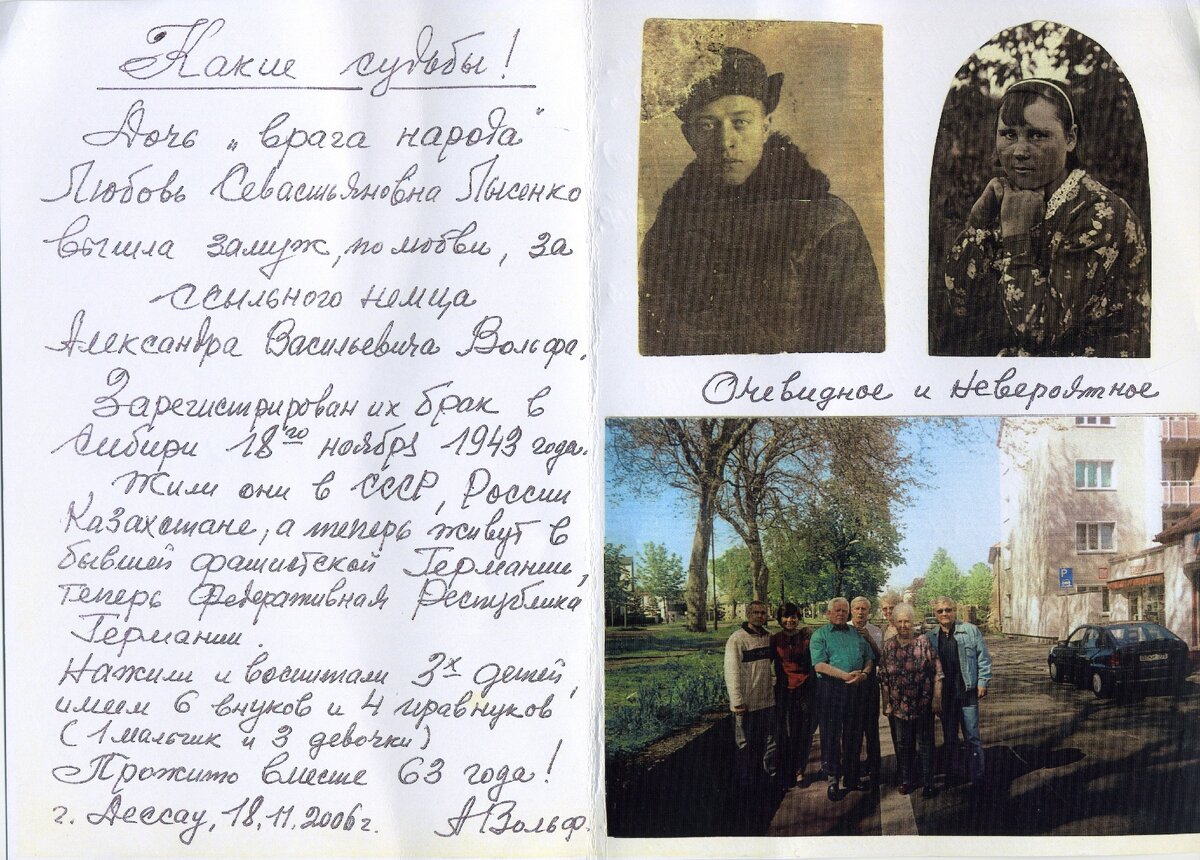 Какие судьбы!
Дочь „врага народа"
Любовь Севастьяновна Лысенко
вышла замуж, по любви, за
ссыльного немца
Александра Васильевича Вольфа.
Зарегистрирован их брак в
Сибири 18го ноября 1943 года.
Жили они в СССР, России
Казахстане, а теперь живут в
бывшей фашистской Германии,
теперь Федеративная Республика
Германии.
Нажили и воспитали 3х детей,
имеем 6 внуков и 4 правнуков
(1 мальчик и 3 девочки)
Прожито вместе 63 года!
г. Дессау, 18.11.2006г. АВольф.
Очевидное и невероятное
P